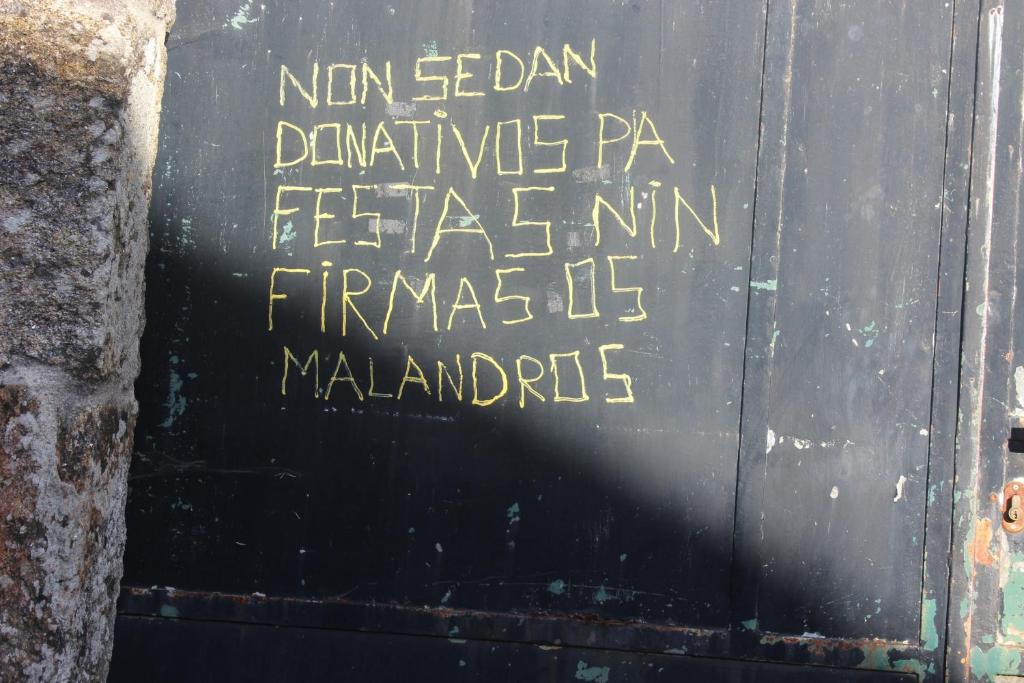 NON SEDAN
DONATIVOS PA
FESTAS NIN
FIRMAS OS
MALANDROS